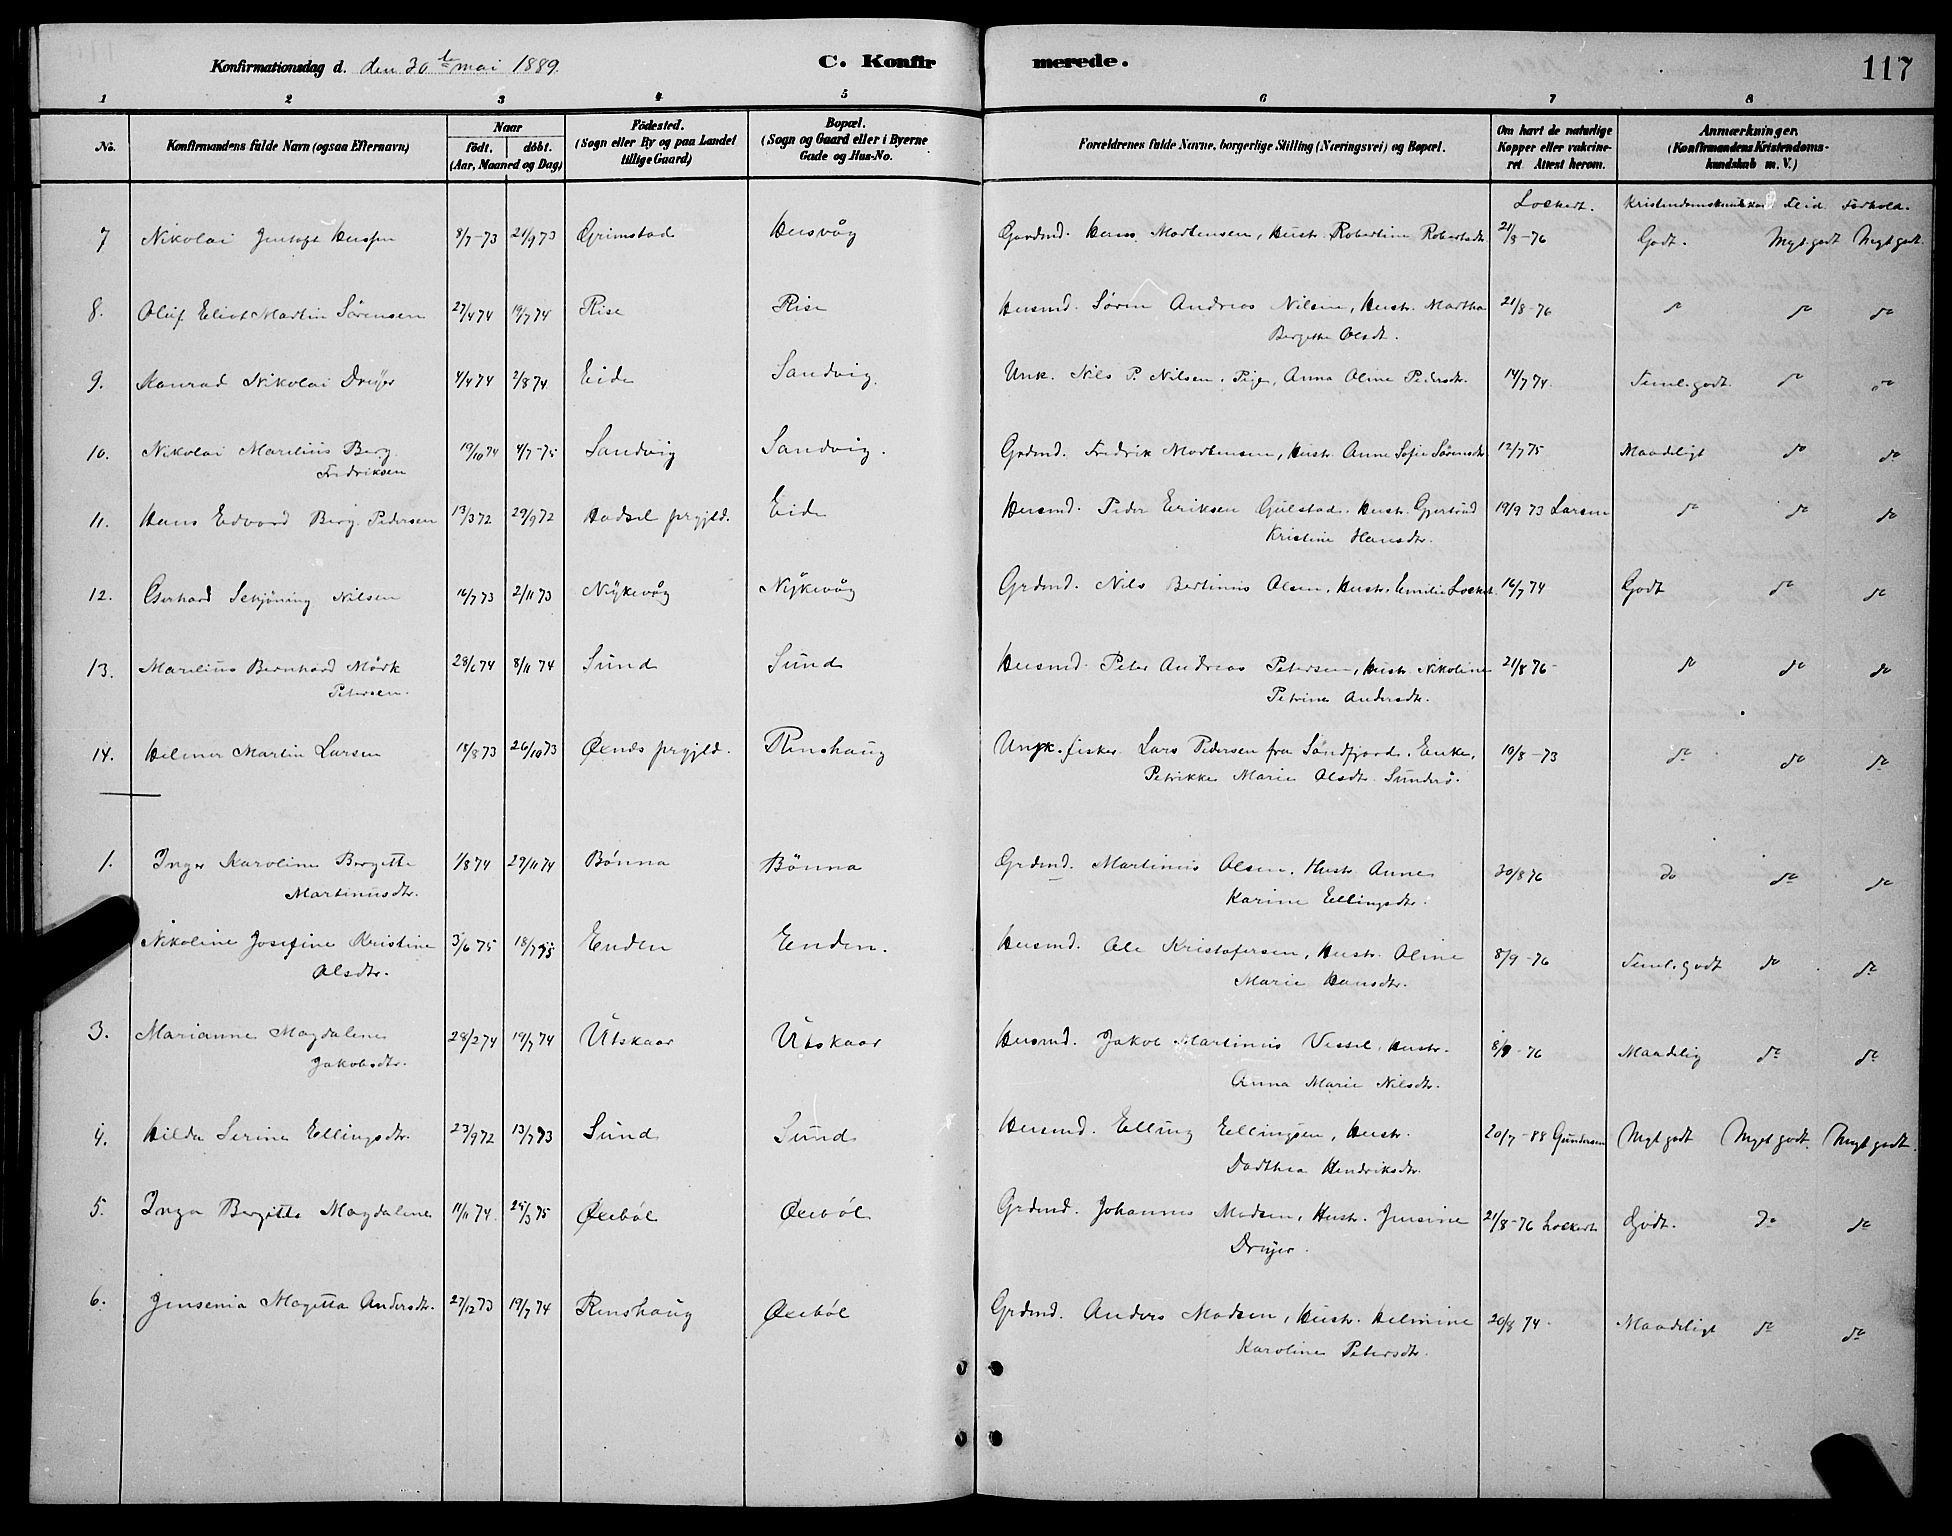 117
Konfirmationsdag d. den 30te mai 1889. C. Konfirmerede.
1 2 3 4 5 6 7 8
No. Konfirmandens fulde Navn (ogsaa Efternavn) Naar født. døbt. (Aar, Maaned og Dag) Fødested. (Sogn eller By og paa Landet tillige Gaard) Bopæl. (Sogn og Gaard eller i Byerne Gade og Hus-No. Forældrenes fulde Navne, borgerlige Stilling (Næringsvei) og Bopæl. Om havt de naturlige Kopper eller vakcineret. Attest herom. Anmærkninger. (Konfirmandens Kristendomskundskab m. V.)
Lockert. Kristendomskundskab Flid Forhold.
7 Nikolai Jentoft 8/7-73 21/9 73 Grimstad Husvåg Gaardmd. Hans Mortensen, Hustr. Robertine Robertsdtr 21/8-76 Godt. Mgt godt Mgt godt.
8. Oluf Eliot Martin Sørensen 27/4 74 19/7 74 Rise Rise Husmd. Søren Andreas Nilsen, Hustr. Martha 21/8-76 do do do
Bergitte Olsdt.
9. Konrad Nikolai Dreyer 4/4 74 2/8 74 Eide Sandvig. Unk. Nils P. Nilsen, Pige, Anna Oline Pedersdtr. 14/7 74. Teml. godt. do do
10. Nikolai Marelius Berg 19/10 74 4/7-75 Sandvig Sandvig. Grdmd. Fredrik Mortensen, Hustr. Anne Sofie Sørensdtr 12/7 75 Maadeligt do do
Fredriksen
11. Hans Edvard Berg Pedersen 13/3 72 29/9 72 Hadsel prgjld. Eide Husmd. Peder Eriksen Gulstad. Hustr. Gjertrud 19/9 73 Larsen do do do
Kristine Hansdtr.
12. Gerhard Schjøning Nilsen 16/7 73 2/11 73 Nykevåg Nykevåg Grdmd. Nils Bertinus Olsen, Hustr. Emilie Lockert. 16/7 74 Godt do do
13. Marelius Bernhard Mørk 28/6 74 8/11 74 Sund Sund Husmd. Peter Andreas Petersen, Hustr. Nikoline 21/8 76- do do do
Petersen. Petrine Andersdtr.
14. Helmer Martin Larsen 18/8 73 26/10 73 Øxnes prgjld. Renshaug Ungk. fisker Lars Pedersen fra Søndfjord. Enke, 10/8-73 do do do
Petrikke Marie Olsdtr. Sunderø.
1. Inger Karoline Bergitte 1/8 74 29/11 74 Bønna Bønna Grdmd. Martinus Olsen, Hustr. Anne 30/8 76 do do do
Martinusdtr. Karine Ellingsdtr.
Nikoline Josefine Kristine 3/6 75 18/7 75 Enden Enden. Husmd. Ole Kristofersen, Hustr. Oline 8/9-76 Teml. godt do do
Olsdtr. Marie Hansdtr.
3. Marianne Magdalene 28/2 74 19/7 74 Utskaar Utskaar Husmd. Jakob Martinus Vessel, Hustr. 8/9-76 Maadelig do do
Jakobsdtr. Anna Marie Nilsdtr.
4. Hilda Serine Ellingsdtr. 23/9 72 13/7 73 Sund Sund Husmd. Elling Ellingsen, Hustr. 20/7-88 Gundersen Mgt godt Mgt godt. Mgt godt.
Dorthea Hendriksdtr.
5. Inga Bergitte Magdalene 11/11 74. 29/3 75 Øxebøl Øxebøl Grdmd. Johannes Madsen, Hustr. Jensine 21/8-76 Lockert Godt. do do
Dreyer.
6. Jensenia Magitta Andersdtr. 27/12 73 19/7 74 Renshaug Øxebøl Grdmd. Anders Madsen, Hustr. Helmine 20/8 74. Maadeligt do do
Karoline Petersdtr.